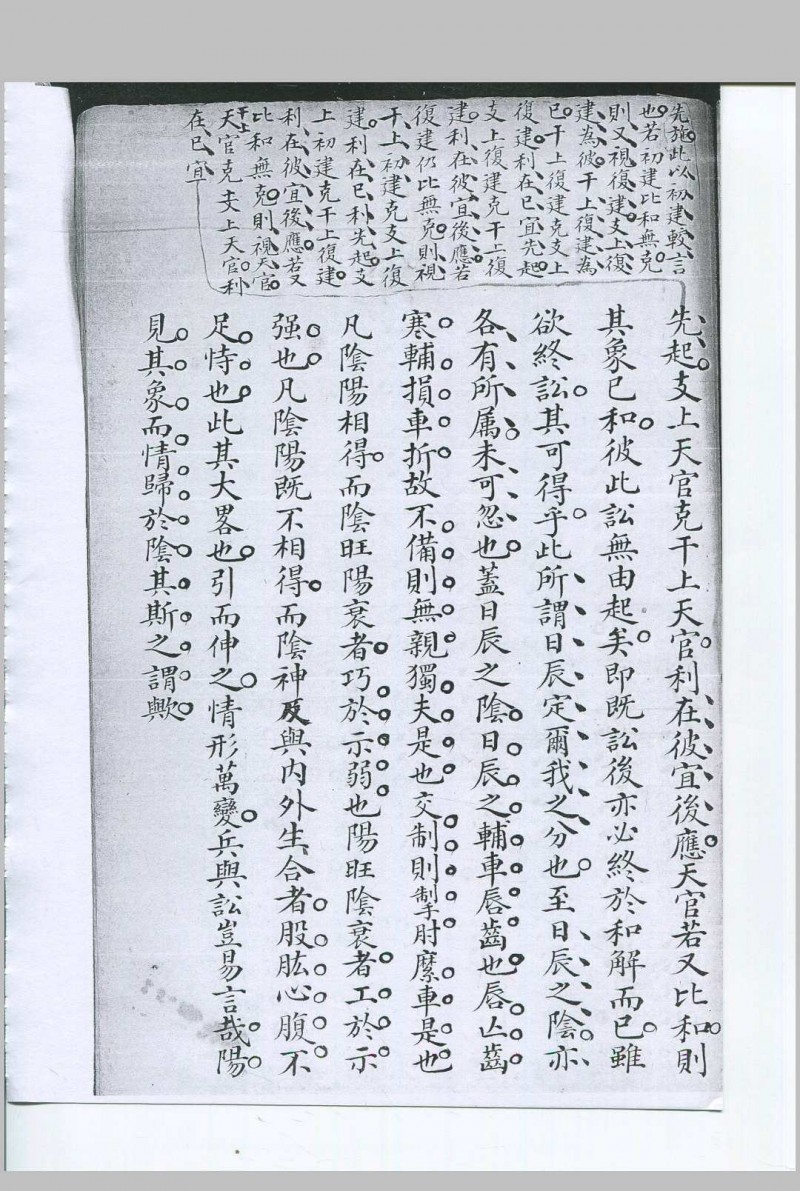 先施此以初建較言
也若初建比和無克
則又視復建支上復
建為彼干上復建為
巳干上復建克支上
復建利在巳宜先起
支上復建克干上復
建利在彼宜後應若
復建仍比無克則視
干上初建克支上復
建利在巳利先起支
上初建克干上復建
利在彼宜後應若又
比和無克則視天官
干上天官克支上天官利
在巳宜
先起支上天官克干上天官利在彼宜後應天官若又比和則
其象巳和彼此訟無由起矣即既訟後亦必終於和解而已雖
欲終訟其可得乎此所謂日辰定爾我之分也至日辰之陰亦
各有所属未可忽也蓋日辰之陰日辰之輔車唇齒也唇亾齒
寒輔損車折故不備則無親獨夫是也交制則掣肘縻車是也
凡陰陽相得而陰旺陽衰者巧於示弱也陽旺陰衰者工於示
强也凡陰陽既不相得而陰神及與内外生合者股肱心腹不
足恃也此其大畧也引而伸之情形萬變兵與訟豈易言哉陽
見其象而情歸於陰其斯之謂歟